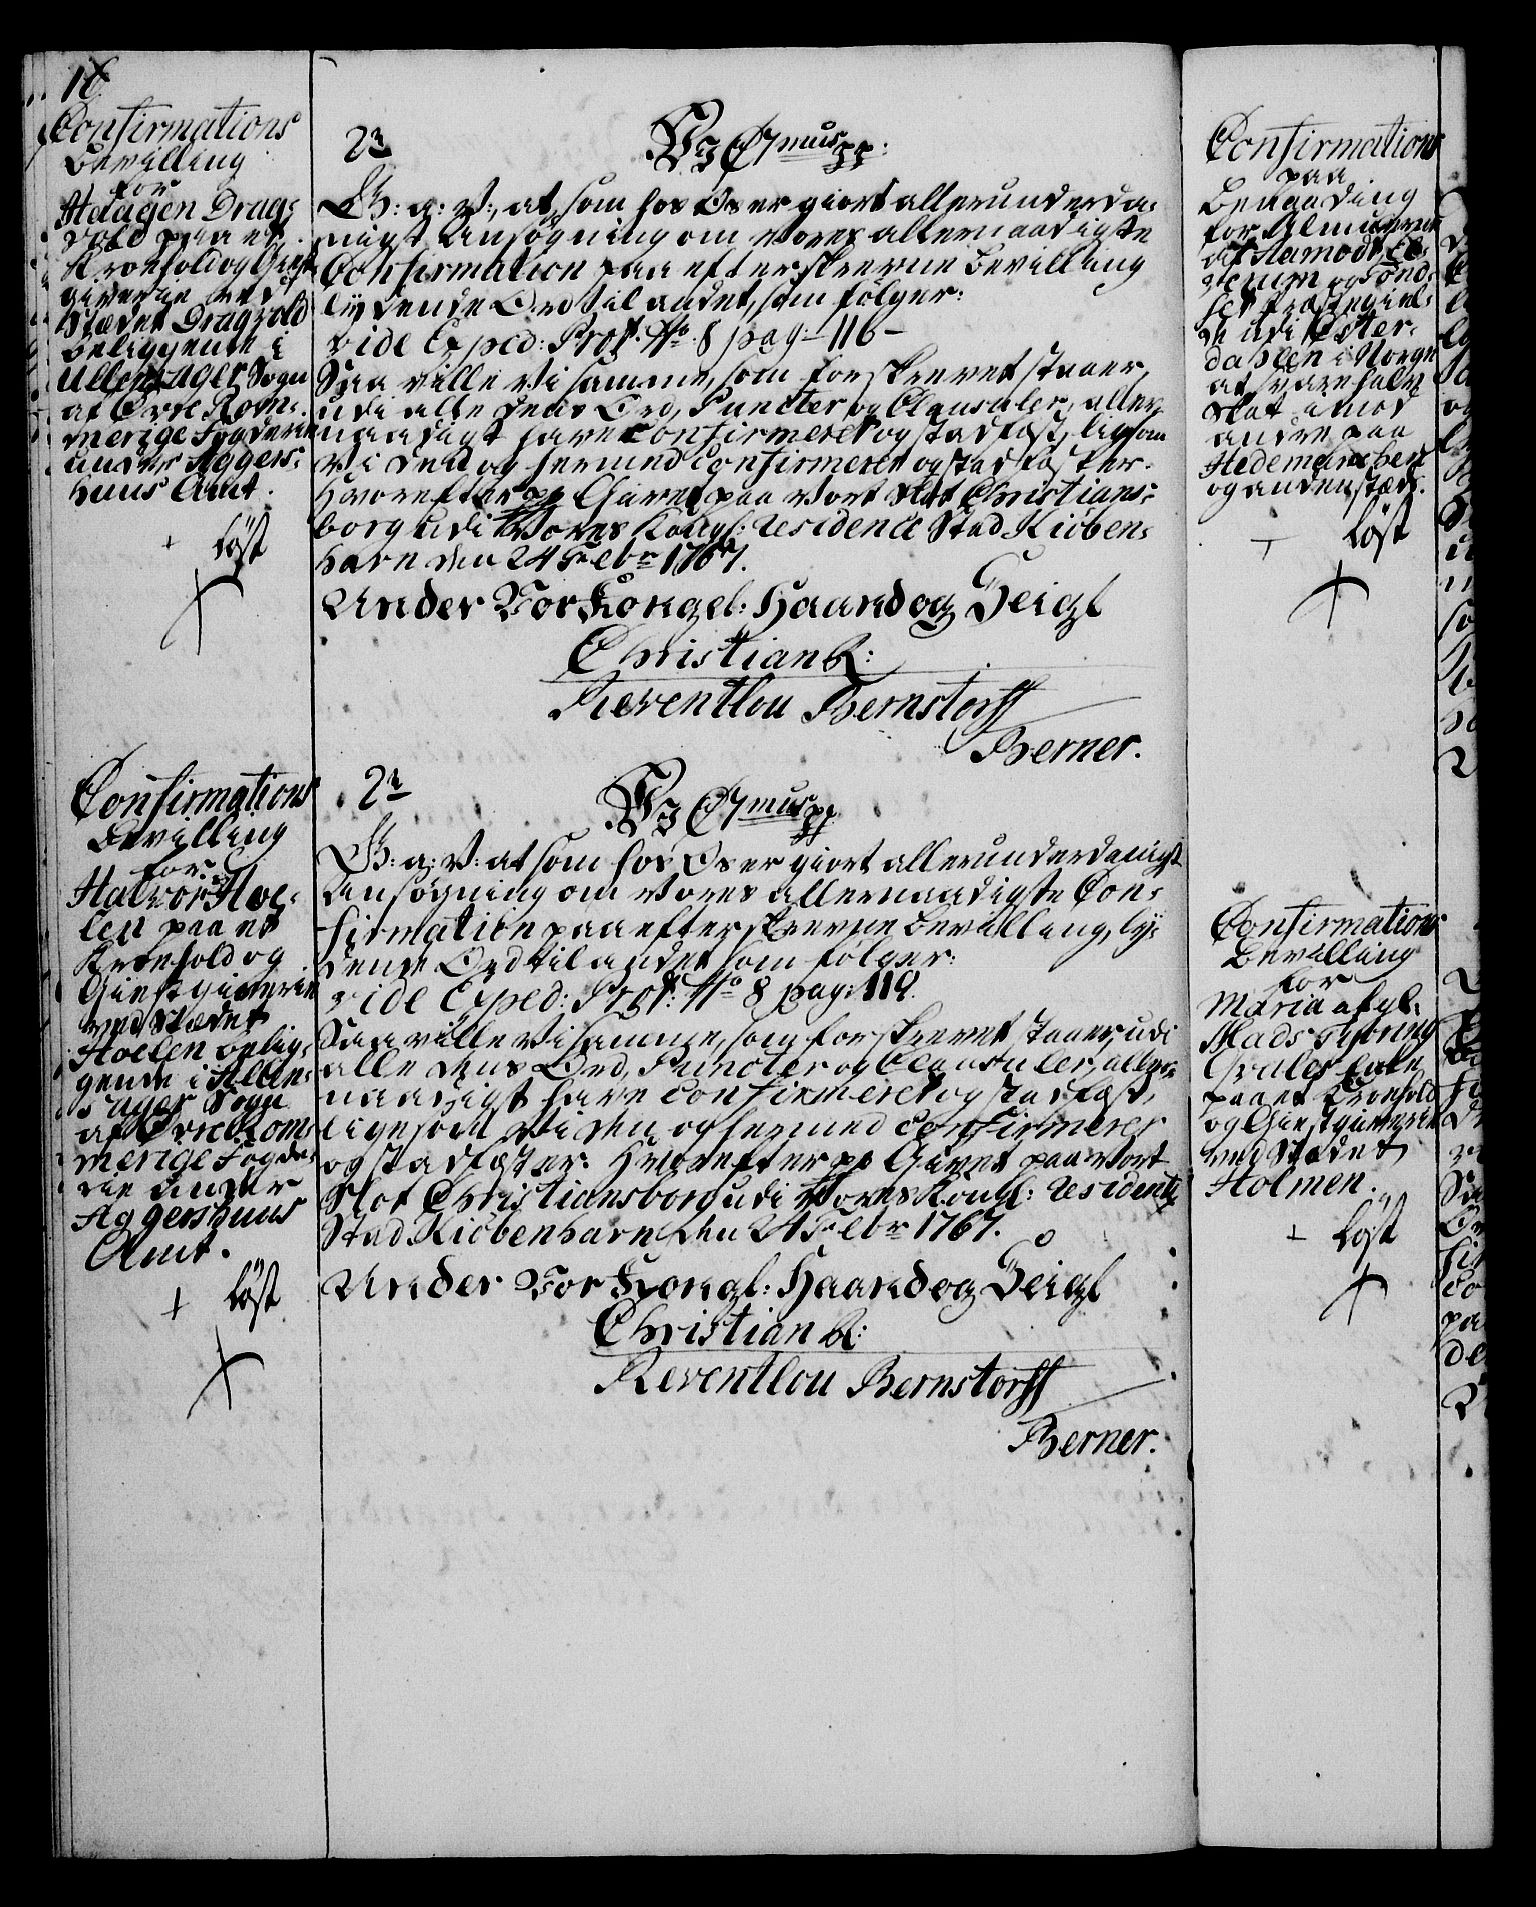 18
Confirmations
Bevilling
for
Haagen Drag-
vold paa et
Kroehold og Giest-
giverie ved
Stædet Dragvold
beliggende i
Ullensager Sogn
af Øvre Rom-
merige Fogderie
under Aggers-
huus Amt.
+ löst
2r
Vj C7mus pp:
G: a: V:, at, som hos Os er giort allerunderda-
nigst Ansögning om Vores allernaadigste
Confirmation paa efterskrevne Bevilling
lÿdende Ord til andet, som fölger:
vide Exped: Prot: No. 8 pag: 116 -
Saa ville Vi samme, som forskrevet staaer,
udi alle dens Ord, Puncter og Clausuler, aller-
naadigst have confirmeret og stadfæst, ligesom
Vi den og hermed confirmerer og stadfæster.
Hvorefter pp Givet paa Vort Slot Christians-
borg udi Vores Kongl: Residence Stad Kiöben-
havn den 24 Febr 1767.
Under Vor Kongel: Haand og Seigl
Christian R:
Reventlou Bernstorff
Berner.
Confirmations
Bevilling
for
Halvor Hoe-
len paa et
Kroehold og
Giestgiverie
ved Stædet
Hoelen belig-
gende i Ullen-
sager Sogn
af Øvre Rom-
merige Fogde-
rie under
Aggershuus
Amt.
+ löst
2r
Vj C7mus pp
G: a: V: at som hos Os er giort allerunderdanigst
Ansögning om Vores allernaadigste Con-
firmation paa efterskrevne Bevilling, lÿ-
dende Ord til andet, som fölger:
vide Exped: Prot: No 8 pag: 119.
Saa ville Vi samme, som forskrevet staaer, udi
alle dens Ord, Puncter og Clausuler, aller-
naadigst have confirmeret og stadfæst,
ligesom Vi den og hermed confirmerer
og stadfæster. Hvorefter pp Givet paa Vort
Slot Christiansborg udi Vores Kongl: Residentz
Stad Kiöbenhavn den 24 Febr 1767.
Under Vor Kongl: Haand og Seigl
Christian R:
Reventlou Bernstorff
Berner.
Confirmations
paa
Benaading
for Almuerne
af Aamodt, El-
verum og Sönd-
Præstegiel-
de udi Öster-
dahlen i Norge
at svare halv
Skat imod
andre paa
Hedemarchen
og andenstæds.
+ löst
Confirmations
Bevilling
for
Maria afgl:
Mads
Enke
paa et Kroehold
og Giestgiverie
ved Stædet
Holmen.
+ löst